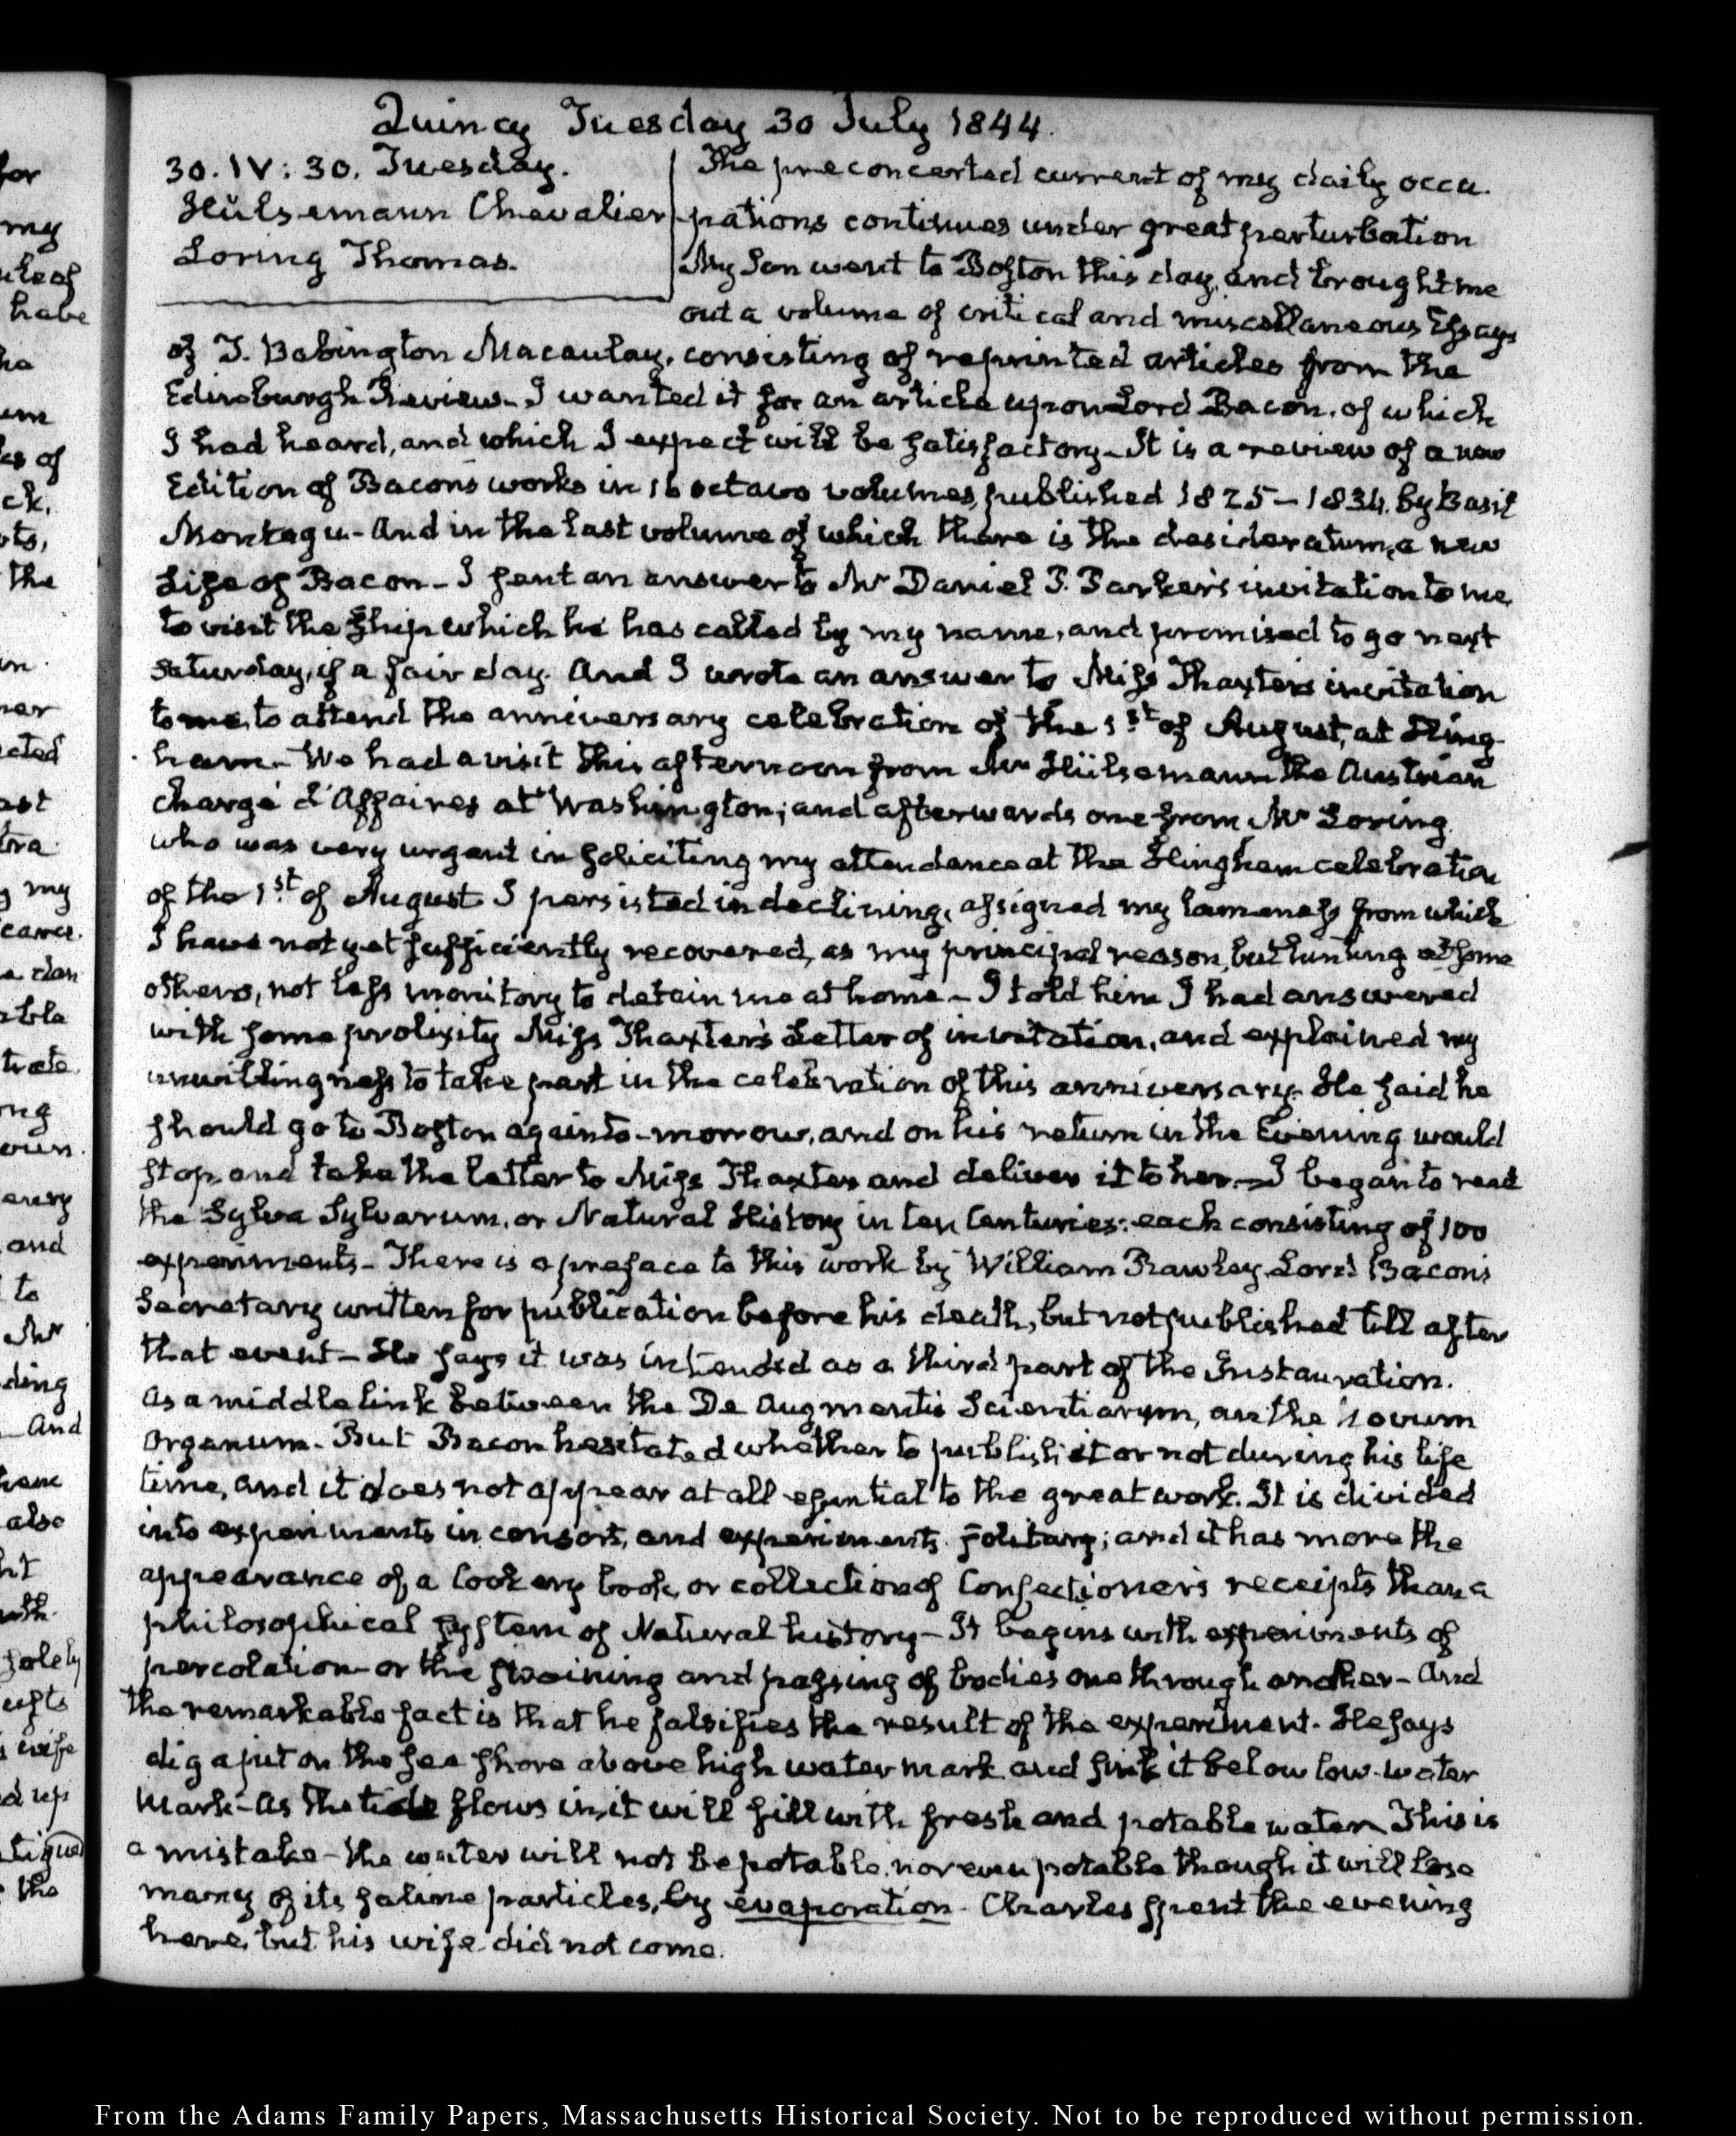 Quincy Tuesday 30 July 1844.
30. IV: 30. Tuesday.
Hülsemann Chevalier
Loring Thomas.
The preconcerted current of my daily occu-
pations continues under great perturbation
My Son went to Boston this day, and brought me
out a volume of critical and miscellaneous Essays
of T. Babington Macaulay, consisting of reprinted articles from the
Edinburgh Review. I wanted it for an article upon Lord Bacon, of which
I had heard, and which I expect will be satisfactory - It is a review of a new
Edition of Bacon's works in 16 octavo volumes, published 1825-1834. by Basil
Montagu - And in the last volume of which there is the desideratum, a new
Life of Bacon - I sent an answer to Mr Daniel P. Parker's invitation to me
to visit the Ship which he has called by my name, and promised to go next
Saturday, if a fair day. And I wrote an answer to Miss Thaxter's invitation
to me, to attend the anniversary celebration of the 1st of August, at Hing-
ham - We had a visit this afternoon from Mr Hülsemann the Austrian
chargé d'Affaires at Washington; and afterwards one from Mr Loring
who was very urgent in soliciting my attendance at the Hingham celebration
of the 1st of August. I persisted in declining, assigned my lameness from which
I have not yet sufficiently recovered, as my principal reason, but hinting at some
others, not less monitory to detain me at home - I told him I had answered
with some prolixity Miss Thaxter's Letter of invitation, and explained my
unwillingness to take part in the celebration of this anniversary. He said he
should go to Boston again to-morrow, and on his return in the Evening would
stop and take the Letter to Miss Thaxter and deliver it to her. - I began to read
the Sylva Sylvarum, or Natural History in ten Centuries: each consisting of 100
experiments - There is a preface to this work by William Rawley, Lord Bacon's
Secretary written for publication before his death, but not published till after
that event - He says it was intended as a third part of the Instauration.
as a middle link between the De Augmentis Scientiarum, an the Novum
Organum. But Bacon hesitated whether to publish it or not during his life
time, and it does not appear at all essential to the great work. It is divided
into experiments in consort, and experiments solitary; and it has more the
appearance of a Cookery book, or collection of Confectioner's receipts than a
philosophical system of Natural history - It begins with experiments of
percolation - or the straining and passing of bodies one through another - And
the remarkable fact is that he falsifies the result of the experiment. He says
dig a pit on the sea shore above high water mark and sink it below low-water
mark - As the tide flows in, it will fill with fresh and potable water. This is
a mistake - the water will not be potable, nor even potable though it will lose
many of its saline particles, by evaporation. Charles spent the evening
here, but his wife did not come.
From the Adams Family Papers, Massachusetts Historical Society. Not to be reproduced without permission.